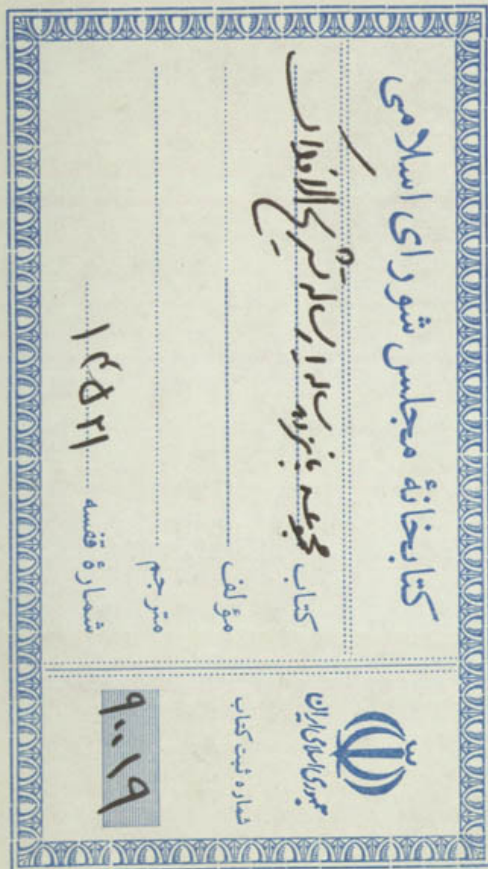 کتابخانهٔ مجلس شورای اسلامی
کتاب مجموعه پانزده رساله (رساله تشریح الافلاک)
مؤلف
مترجم
شمارهٔ قفسه ۱۴۵۲۱
جمهوری اسلامی ایران
شماره ثبت کتاب
۹۰۰۱۹